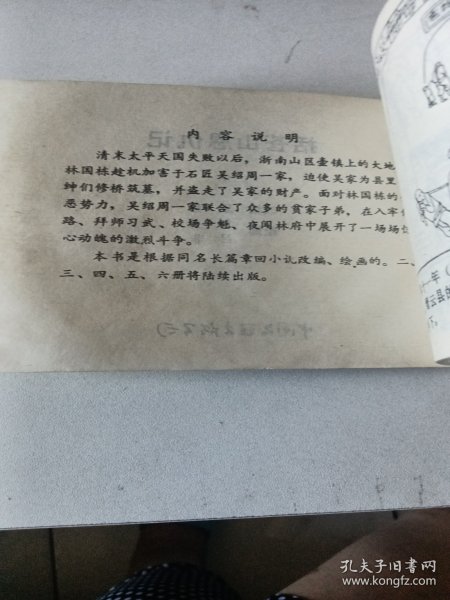 内容说明
清末太平天国失败以后，浙南山区壶镇上的大地
林国栋趁机加害于石匠吴绍周一家，迫使吴家为县里
绅们修桥筑墓，并盗走了吴家的财产。面对林国栋的
恶势力，吴绍周一家联合了众多的贫家子弟，在入牢
路、拜师习武、校场争魁、夜闯林府中展开了一场场
心动魄的激烈斗争。
本书是根据同名长篇章回小说改编、绘画的。二、
三、四、五、六册将陆续出版。
孔夫子旧书网
www.kongfz.com